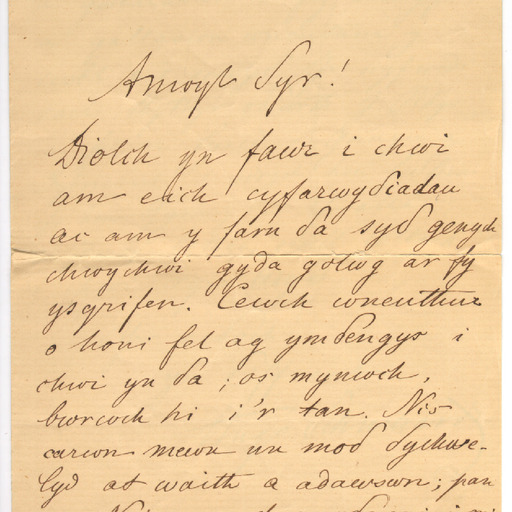 Anwyl Syr!
Diolch yn fawr i chwi
am eich cyfarwyδiadau
ac am y farn δa syδ genych
chwychwi gyda golwg ar fy
ysgrifen. Cewch wneuthur
o honi fel ag ymδengys i
chwi yn δa; os mynwch,
bwrwch hi i'r tan. Nis
carwn mewn un moδ δychwe-
lyd at waith a adawswn; pan